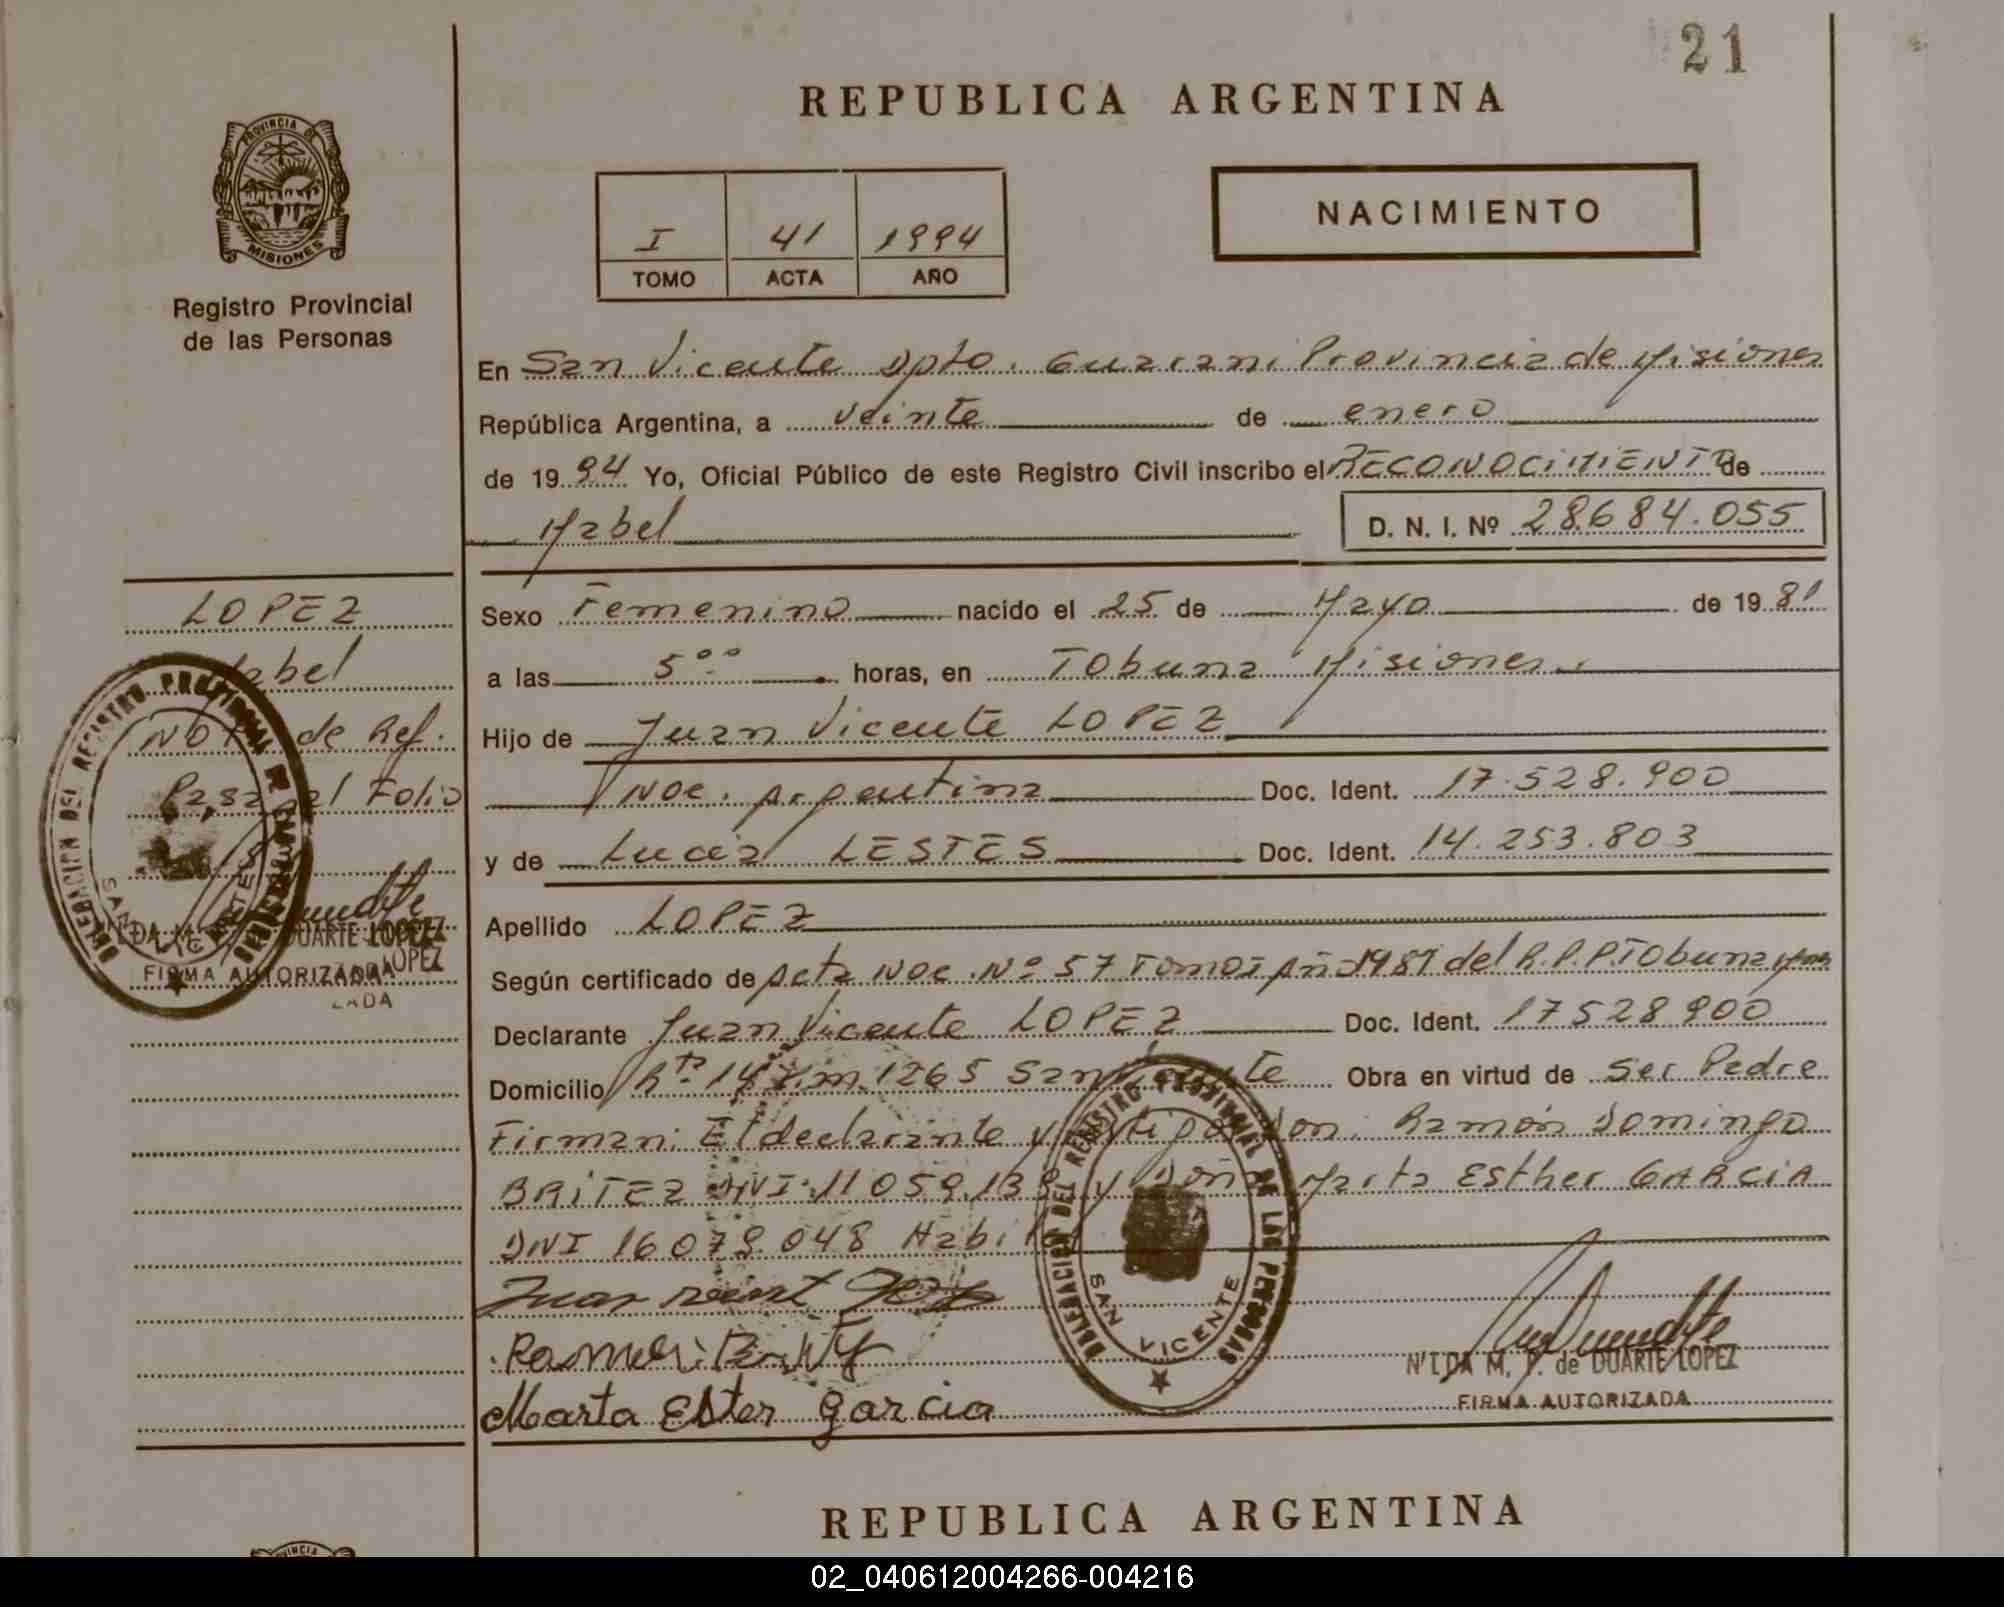 21
REPUBLICA ARGENTINA
PROVINCIA DE
MISIONES
Registro Provincial
de las Personas
I 41 1994
TOMO ACTA AÑO
NACIMIENTO
En San Vicente Dpto. Guarani Provincia de Misiones
República Argentina, a veinte de enero
de 19 94 Yo, Oficial Público de este Registro Civil inscribo el RECONOCIMIENTO de
Mabel
D. N. I. Nº 28.684.055
LOPEZ
Mabel
Nota de Ref.
Pasa al Folio
DUARTE LOPEZ
LOPEZ
FIRMA AUTORIZADA
Sexo Femenino nacido el 25 de Mayo de 19 81
a las 5°° horas, en Tobuna Misiones.
Hijo de Juan Vicente LOPEZ
Nac. Argentina Doc. Ident. 17.528.900
y de Lucia LESTES Doc. Ident. 14.253.803
Apellido LOPEZ
Según certificado de Acta Nac. Nº 57 Tomo I Año 1981 del R.P.P. Tobuna Mnes
Declarante Juan Vicente LOPEZ Doc. Ident. 17528900
Domicilio Rta. 14 Km. 1265 San Vicente Obra en virtud de Ser Padre
Firman: El declarante y testigos Don: Ramón Domingo
BRITEZ DNI: 11.059.139 y Doña Marta Esther GARCIA
DNI 16.079.048 Habiles
Marta Ester garcia
DELEGACION DEL REGISTRO PROVINCIAL DE LAS PERSONAS
SAN VICENTE
NILDA M. F. de DUARTE LOPEZ
FIRMA AUTORIZADA
REPUBLICA ARGENTINA
02_040612004266-004216